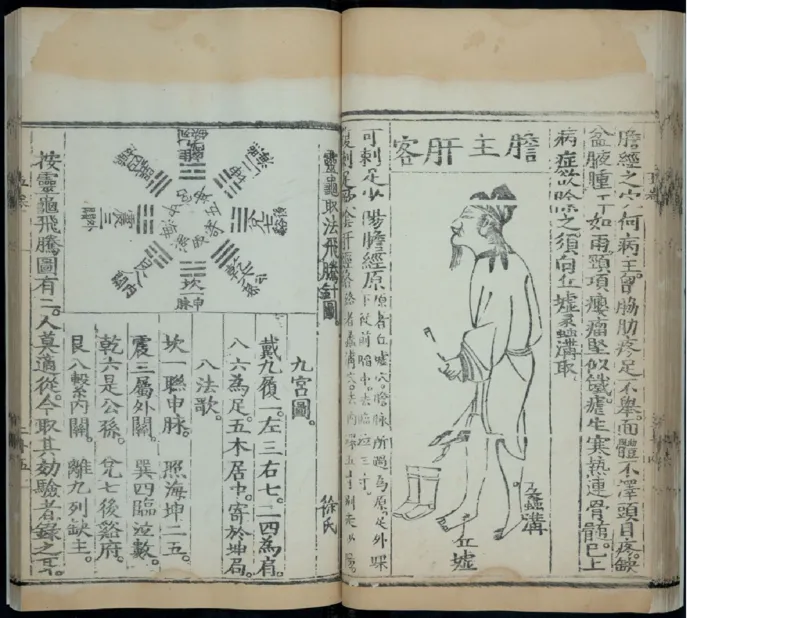 膽經之穴何病主。胸肋疼足不舉。面體不澤頭目疼。缺
盆腋腫汗如雨。頸項癭瘤堅似鐵。瘧生寒熱連骨髓。已上
病症欲除之。須向丘墟蠡溝取
膽主肝客
蠡溝
丘墟
可刺足少陽膽經原原者丘墟穴。膽脉所過為原。足外踝
下從前陷中。去臨泣三寸。
復刺足厥陰肝經絡絡者蠡溝穴。去內踝五寸別走少陽。
靈龜取法飛騰針圖。
徐氏
九宮圖。
戴九履一。左三右七。二四為肩。
八六為足。五木居中。寄於坤局。
八法歌。
坎一聯申脉。照海坤二五。
震三屬外關。巽四臨泣數。
乾六是公孫。兌七後谿府。
艮八繫內關。離九列缺主。
按靈龜飛騰圖有二。人莫適從。今取其効驗者錄之耳。